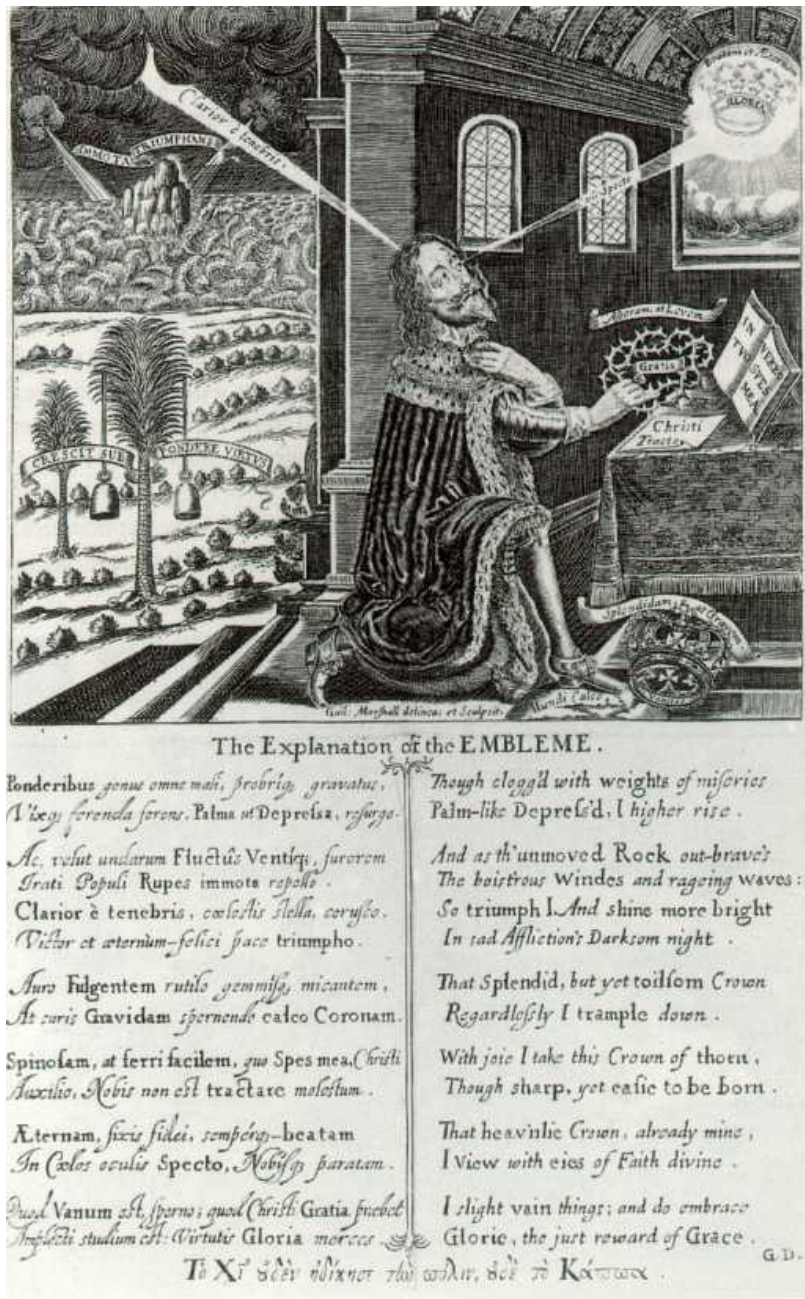 Clarior è tenebris.
IMMOTA, TRIUMPHANS
Beatam et Æternam
GLORIA
Specto
Asperam, at Levem
Gratia
IN VERBO
TVO SPES
MEA
Christi
Tracto
CRESCIT SUB PONDERE VIRTVS
Splendidam, at Gravem
Mundi Calco
Guil: Marſhall delinea: et Sculpsit.
The Explanation of the EMBLEME.
Ponderibus genus omne mali, probriq, gravatus,
Vixq; ferenda ferens, Palma ut Depreſsa, reſurgo.
Ac, velut undarum Fluctûs Ventiq;, furorem
Irati Populi Rupes immota repello.
Clarior è tenebris, cœleſtis ſtella, coruſco.
Victor et æternùm-felici pace triumpho.
Auro Fulgentem rutilo gemmiſq, micantem,
At curis Gravidam ſpernendo calco Coronam.
Spinoſam, at ferri facilem, quo Spes mea, Chriſti
Auxilio, Nobis non eſt tractare moleſtum.
Æternam, fixis fidei, ſempérq;-beatam
In Cœlos oculis Specto, Nobíſq, paratam.
Quod Vanum eſt, ſperno; quod Chriſti Gratia præbet
Amplecti studium eſt: Virtutis Gloria merces.
Though clogg'd with weights of miſeries
Palm-like Depreſs'd, I higher riſe.
And as th'unmoved Rock out-brave's
The boiſtrous Windes and rageing waves:
So triumph I. And shine more bright
In sad Affliction's Darksom night.
That Splendid, but yet toilſom Crown
Regardleſsly I trample down.
With joie I take this Crown of thorn,
Though sharp, yet eaſie to be born.
That heav'nlie Crown, already mine,
I View with eies of Faith divine.
I slight vain things; and do embrace
Glorie, the just reward of Grace.
G.D.
Τὸ Χῖ ȣ̓δὲν ἠδίκησε τὴν πόλιν, ȣ̓δὲ τὸ Κάππα.